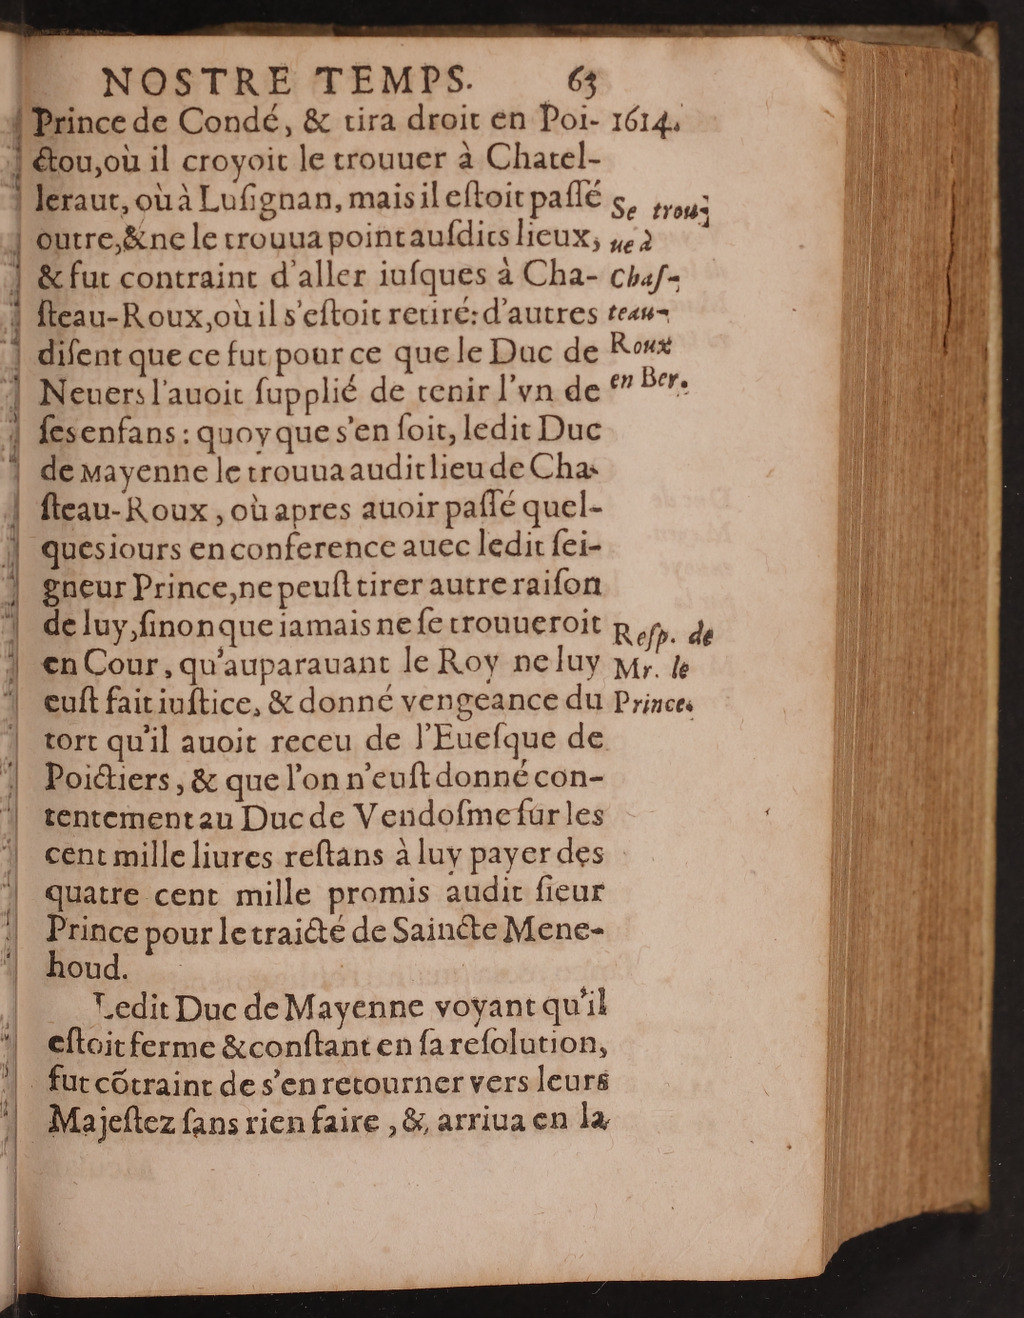 NOSTRE TEMPS. 63
Prince de Condé, & tira droit en Poi-
ctou, où il croyoit le trouuer à Chatel-
leraut, où à Luſignan, mais il eſtoit paſſé
outre, & ne le trouua point auſdits lieux;
& fut contraint d'aller iuſques à Cha-
ſteau-Roux, où il s'eſtoit retiré: d'autres
diſent que ce fut pour ce que le Duc de
Neuers l'auoit ſupplié de tenir l'vn de
ſes enfans: quoy que s'en ſoit, ledit Duc
de Mayenne le trouua audit lieu de Cha-
ſteau-Roux, où apres auoir paſſé quel-
ques iours en conference auec ledit ſei-
gneur Prince, ne peuſt tirer autre raiſon
de luy, ſinon que iamais ne ſe trouueroit
en Cour, qu'auparauant le Roy ne luy
euſt fait iuſtice, & donné vengeance du
tort qu'il auoit receu de l'Eueſque de
Poictiers, & que l'on n'euſt donné con-
tentement au Duc de Vendoſme ſur les
cent mille liures reſtans à luy payer des
quatre cent mille promis audit ſieur
Prince pour le traicté de Saincte Mene-
houd.
Ledit Duc de Mayenne voyant qu'il
eſtoit ferme & conſtant en ſa reſolution,
fut cõtraint de s'en retourner vers leurs
Majeſtez ſans rien faire, & arriua en la
1614.
Se trou-
ue à
Chaſ-
teau-
Roux
en Ber.
Reſp. de
Mr. le
Prince.